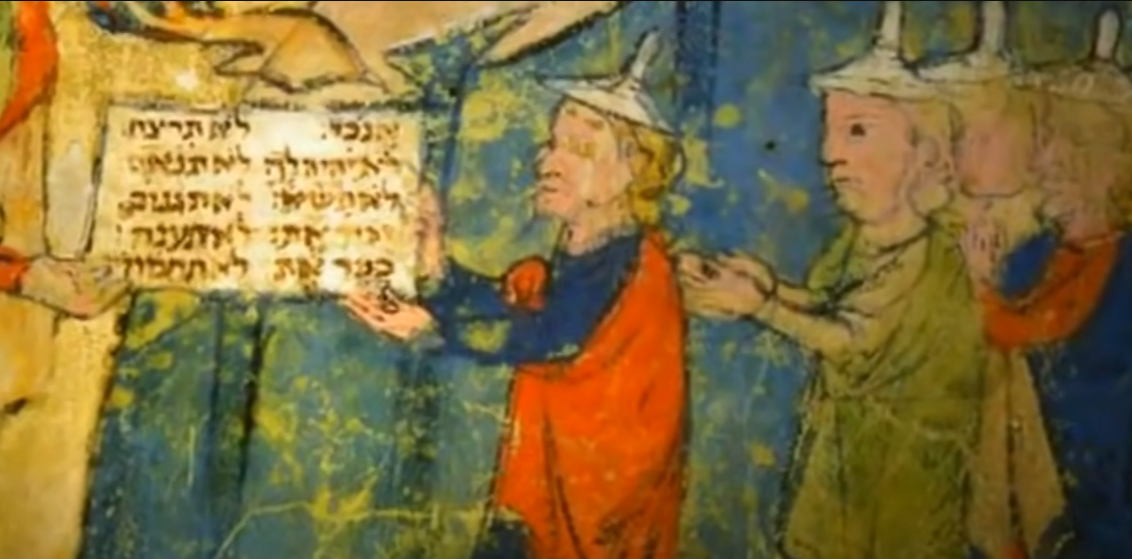 אנכי.
לא יהיה לך
לא תשא
זכור את
כבד את
לא תרצח
לא תנאף
לא תגנוב
לא תענה
לא תחמוד